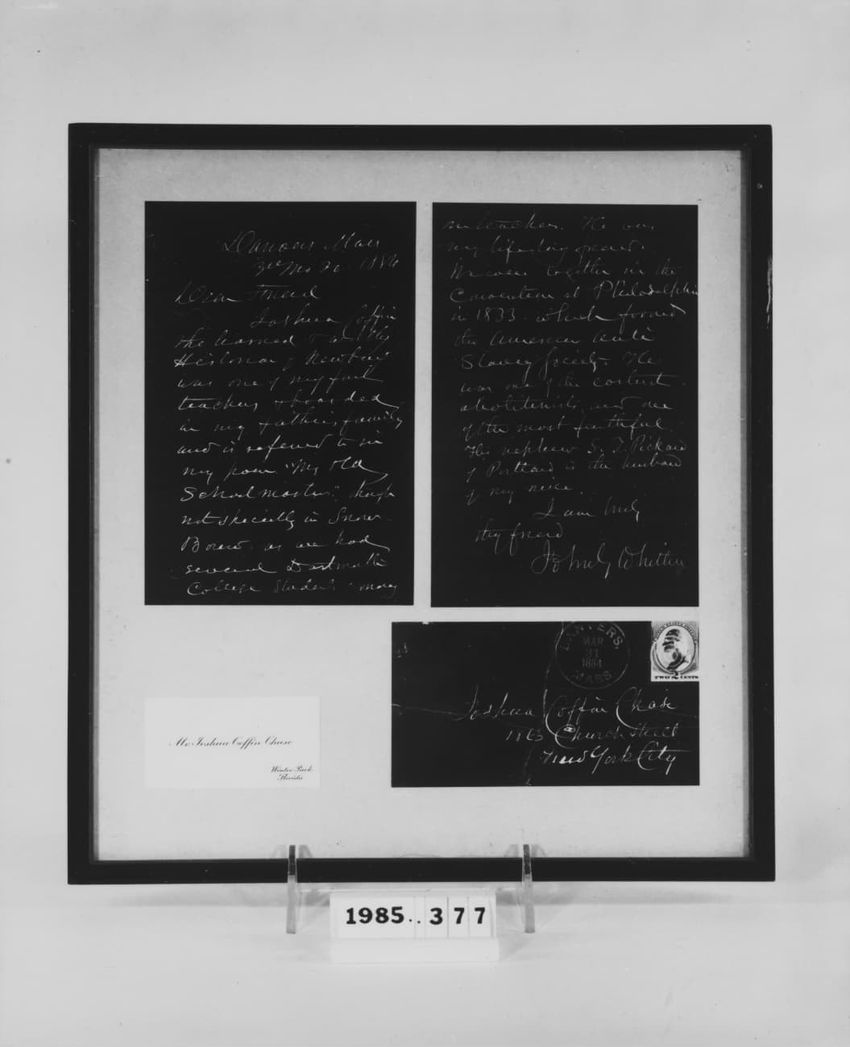 Danvers Mass
3rd Mo 30 1884
Dear Friend
Joshua Coffin
the learned &
Historian of Newbury
was one of my first
teachers & boarded
in my father's family
and is referred to in
my poem "My Old
Schoolmaster" though
not specially in Snow
Bound as we had
several Dartmouth
College Students
as teachers. He was
my lifelong friend.
We were together in the
Convention at Philadelphia
in 1833 which formed
the American Anti
Slavery Society. He
was one of the earliest
abolitionists, and one
of the most faithful.
His nephew S. T. Pickard
of Portland is the husband
of my niece.
I am truly
thy friend
John G Whittier
DANVERS.
MAR
31
1884
MASS.
TWO 2 CENTS
Joshua Coffin Chase
Church Street
New York City
Mr. Joshua Coffin Chase
Winter Park
Florida
1985..377